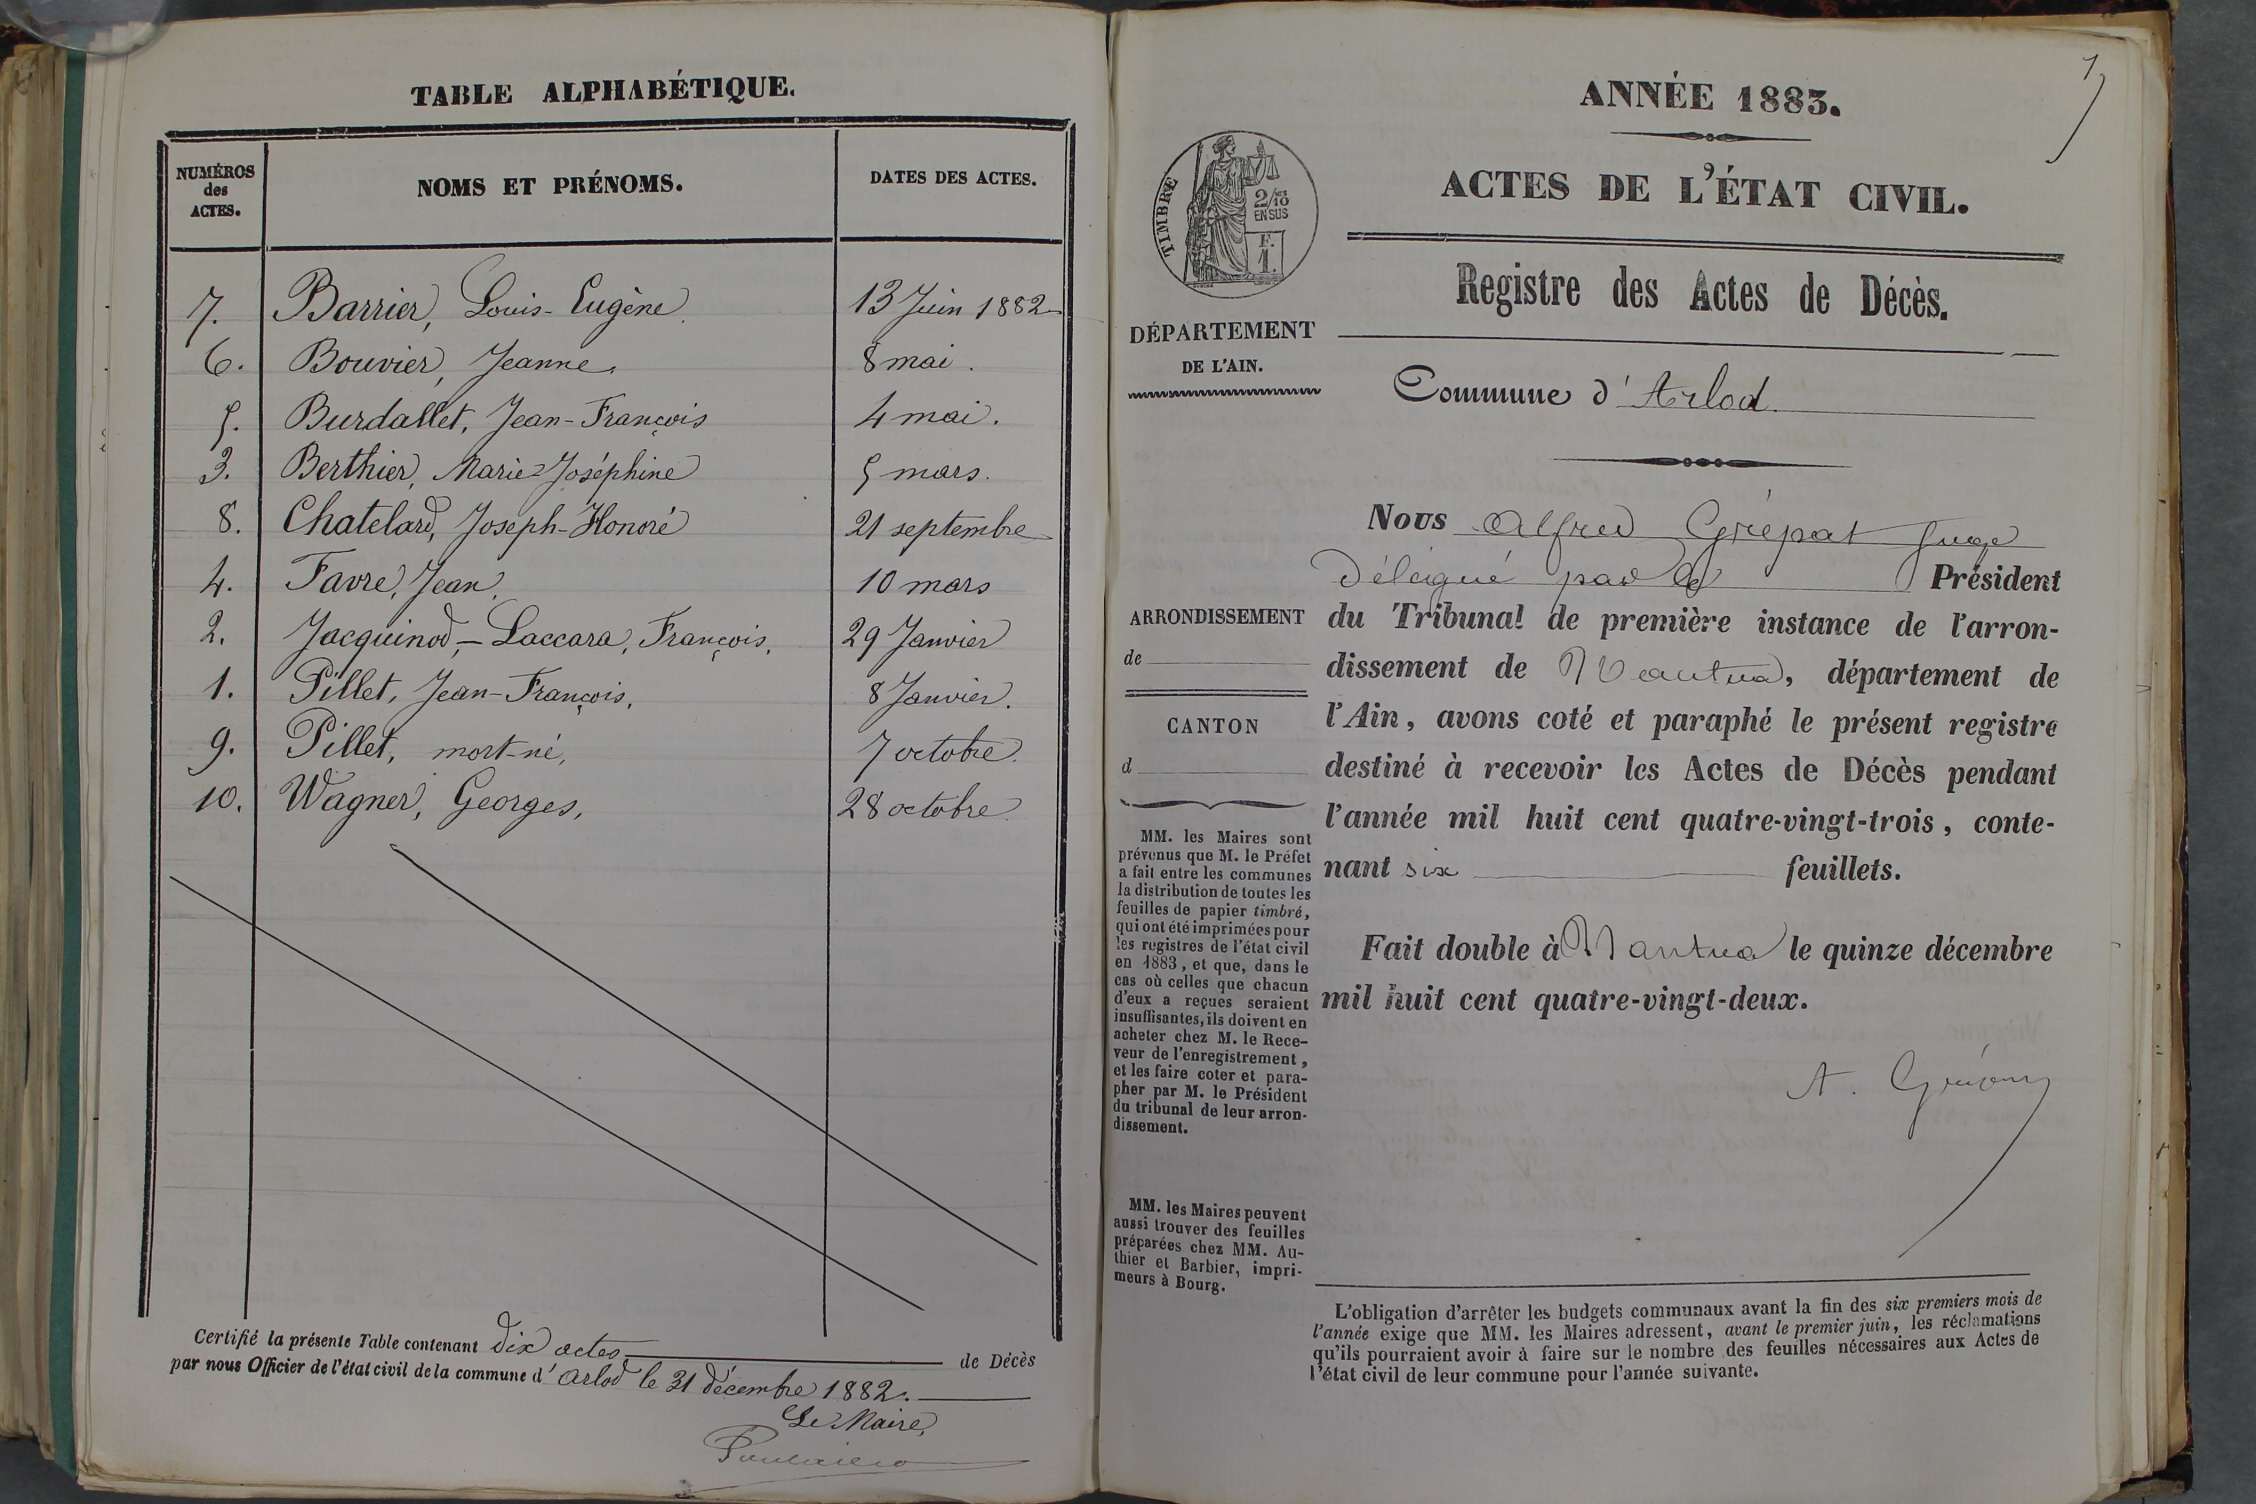 TABLE ALPHABÉTIQUE.
NUMÉROS des ACTES. NOMS ET PRÉNOMS. DATES DES ACTES.
7. Barrier, Louis-Eugène 13 Juin 1882
6. Bouvier, Jeanne, 8 mai.
5. Burdallet, Jean-François 4 mai.
3. Berthier, Marie-Joséphine 5 mars.
8. Chatelard, Joseph-Honoré 21 septembre
4. Favre, Jean, 10 mars
2. Jacquinod,-Laccara, François, 29 Janvier
1. Pillet, Jean-François, 8 Janvier.
9. Pillet, mort-né, 7 octobre.
10. Wagner, Georges, 28 octobre.
Certifié la présente Table contenant dix actes de Décès
par nous Officier de l'état civil de la commune d' Arlod le 31 décembre 1882.
Le Maire,
1
ANNÉE 1883.
ACTES DE L'ÉTAT CIVIL.
TIMBRE
2/10
EN SUS
F.
1.
Registre des Actes de Décès.
DÉPARTEMENT
DE L'AIN.
Commune d'Arlod.
Nous Alfred Grépat Juge
Délégué par le Président
ARRONDISSEMENT
de
CANTON
d
du Tribunal de première instance de l'arron-
dissement de Nantua, département de
l'Ain, avons coté et paraphé le présent registre
destiné à recevoir les Actes de Décès pendant
l'année mil huit cent quatre-vingt-trois, conte-
nant six feuillets.
Fait double à Nantua le quinze décembre
mil huit cent quatre-vingt-deux.
MM. les Maires sont
prévenus que M. le Préfet
a fait entre les communes
la distribution de toutes les
feuilles de papier timbré,
qui ont été imprimées pour
les registres de l'état civil
en 1883, et que, dans le
cas où celles que chacun
d'eux a reçues seraient
insuffisantes, ils doivent en
acheter chez M. le Rece-
veur de l'enregistrement,
et les faire coter et para-
pher par M. le Président
du tribunal de leur arron-
dissement.
MM. les Maires peuvent
aussi trouver des feuilles
préparées chez MM. Au-
thier et Barbier, impri-
meurs à Bourg.
L'obligation d'arrêter les budgets communaux avant la fin des six premiers mois de
l'année exige que MM. les Maires adressent, avant le premier juin, les réclamations
qu'ils pourraient avoir à faire sur le nombre des feuilles nécessaires aux Actes de
l'état civil de leur commune pour l'année suivante.